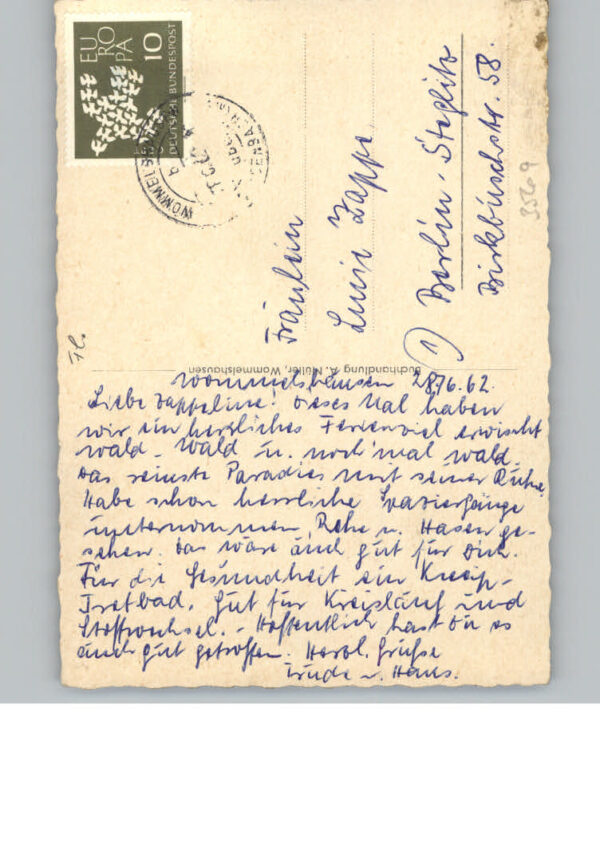 EUROPA
10
DEUTSCHE BUNDESPOST
Fräulein
Luise Zappe
1) Berlin-Steglitz
Birkbuschstr. 58.
Buchhandlung A. Müller, Wommelshausen
Wommelshausen 28.6.62.
Liebe Zappeline! Dieses Mal haben
wir ein herrliches Ferienziel erwischt
Wald - Wald u. noch'mal Wald -
Das reinste Paradies mit seiner Ruhe.
Habe schon herrliche Spaziergänge
unternommen, Rehe u. Hasen ge-
sehen. Das wäre auch gut für Dich.
Für die Gesundheit ein Kneip-
Tretbad. Gut für Kreislauf und
Stoffwechsel. - Hoffentlich hast Du es
auch gut getroffen. Herzl. Grüße
Trude u. Hans.